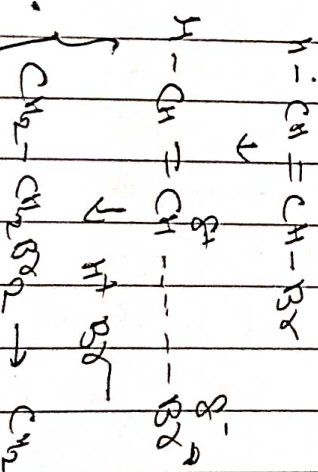 H - CH = CH - Br
↓
δ+ δ-
H - CH = CH ----- Br
↓ H+ Br-
CH2 - CH2 Br2 → CH2